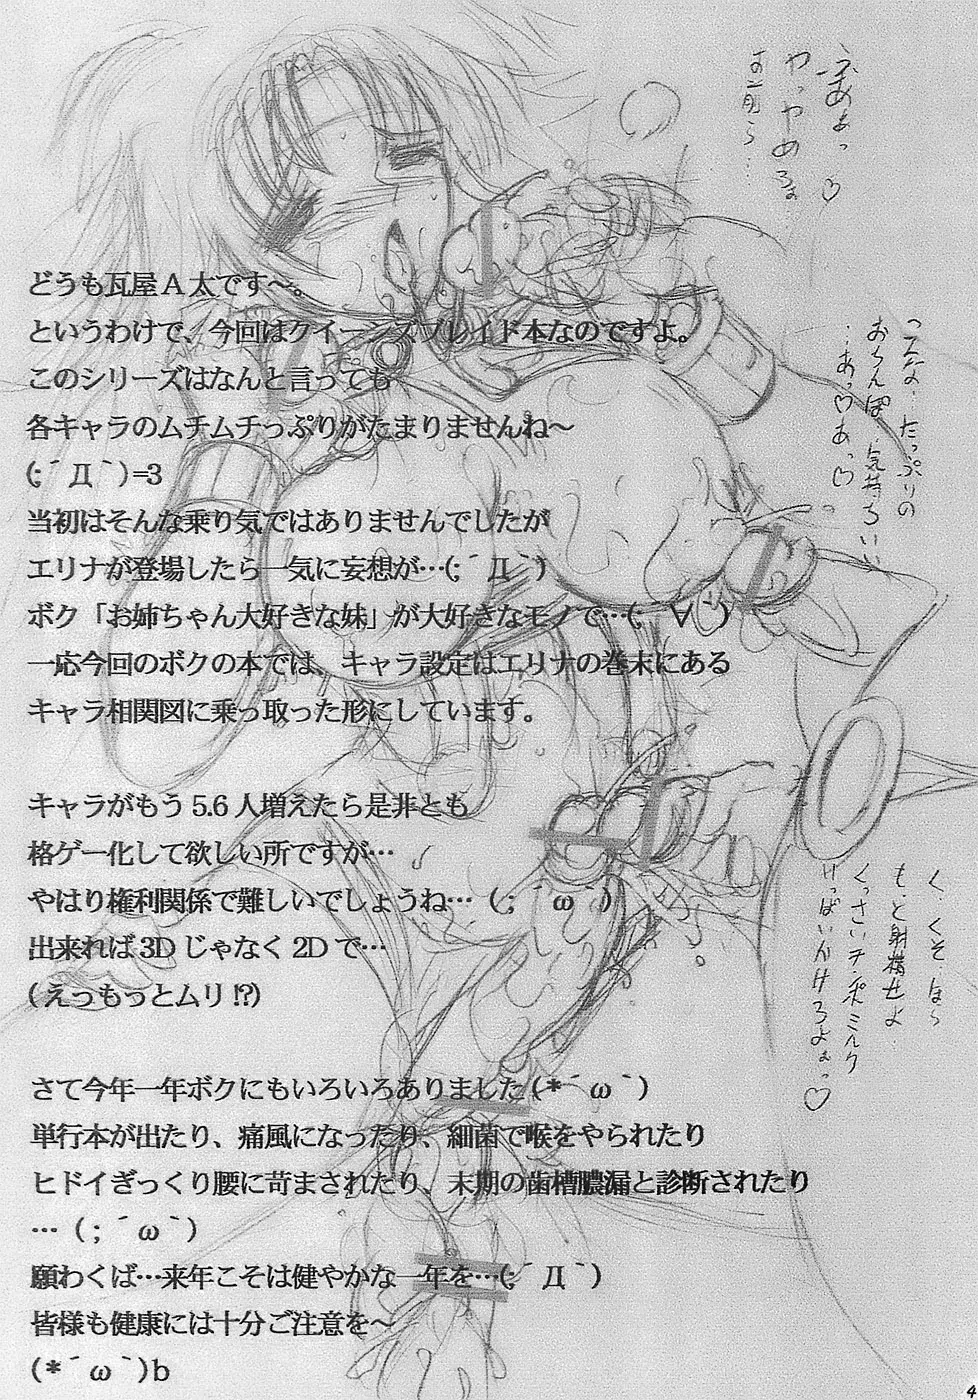 どうも瓦屋A太です～。
というわけで、今回はクイーンズブレイド本なのですよ。
このシリーズはなんと言っても
各キャラのムチムチっぷりがたまりませんね～
(;´Д｀)=3
当初はそんな乗り気ではありませんでしたが
エリナが登場したら一気に妄想が…(;´Д｀)
ボク「お姉ちゃん大好きな妹」が大好きなモノで…(;´∀｀)
一応今回のボクの本では、キャラ設定はエリナの巻末にある
キャラ相関図に乗っ取った形にしています。
キャラがもう5.6人増えたら是非とも
格ゲー化して欲しい所ですが…
やはり権利関係で難しいでしょうね…（;´ω｀）
出来れば3Dじゃなく2Dで…
(えっもっとムリ!?)
さて今年一年ボクにもいろいろありました(*´ω｀)
単行本が出たり、痛風になったり、細菌で喉をやられたり
ヒドイぎっくり腰に苛まされたり、末期の歯槽膿漏と診断されたり
…（;´ω｀）
願わくば…来年こそは健やかな一年を…(;´Д｀)
皆様も健康には十分ご注意を～
(*´ω｀)b
ふあぁっ♡
やっやめろぉ
お前ら…
こんな、たっぷりの
おちんぽ、気持ちいい
…あっ♡あっ♡
く、くそ、ほら
もっと射精せよ
くっさいチンポミルク
いっぱいかけろよぉっ♡
4